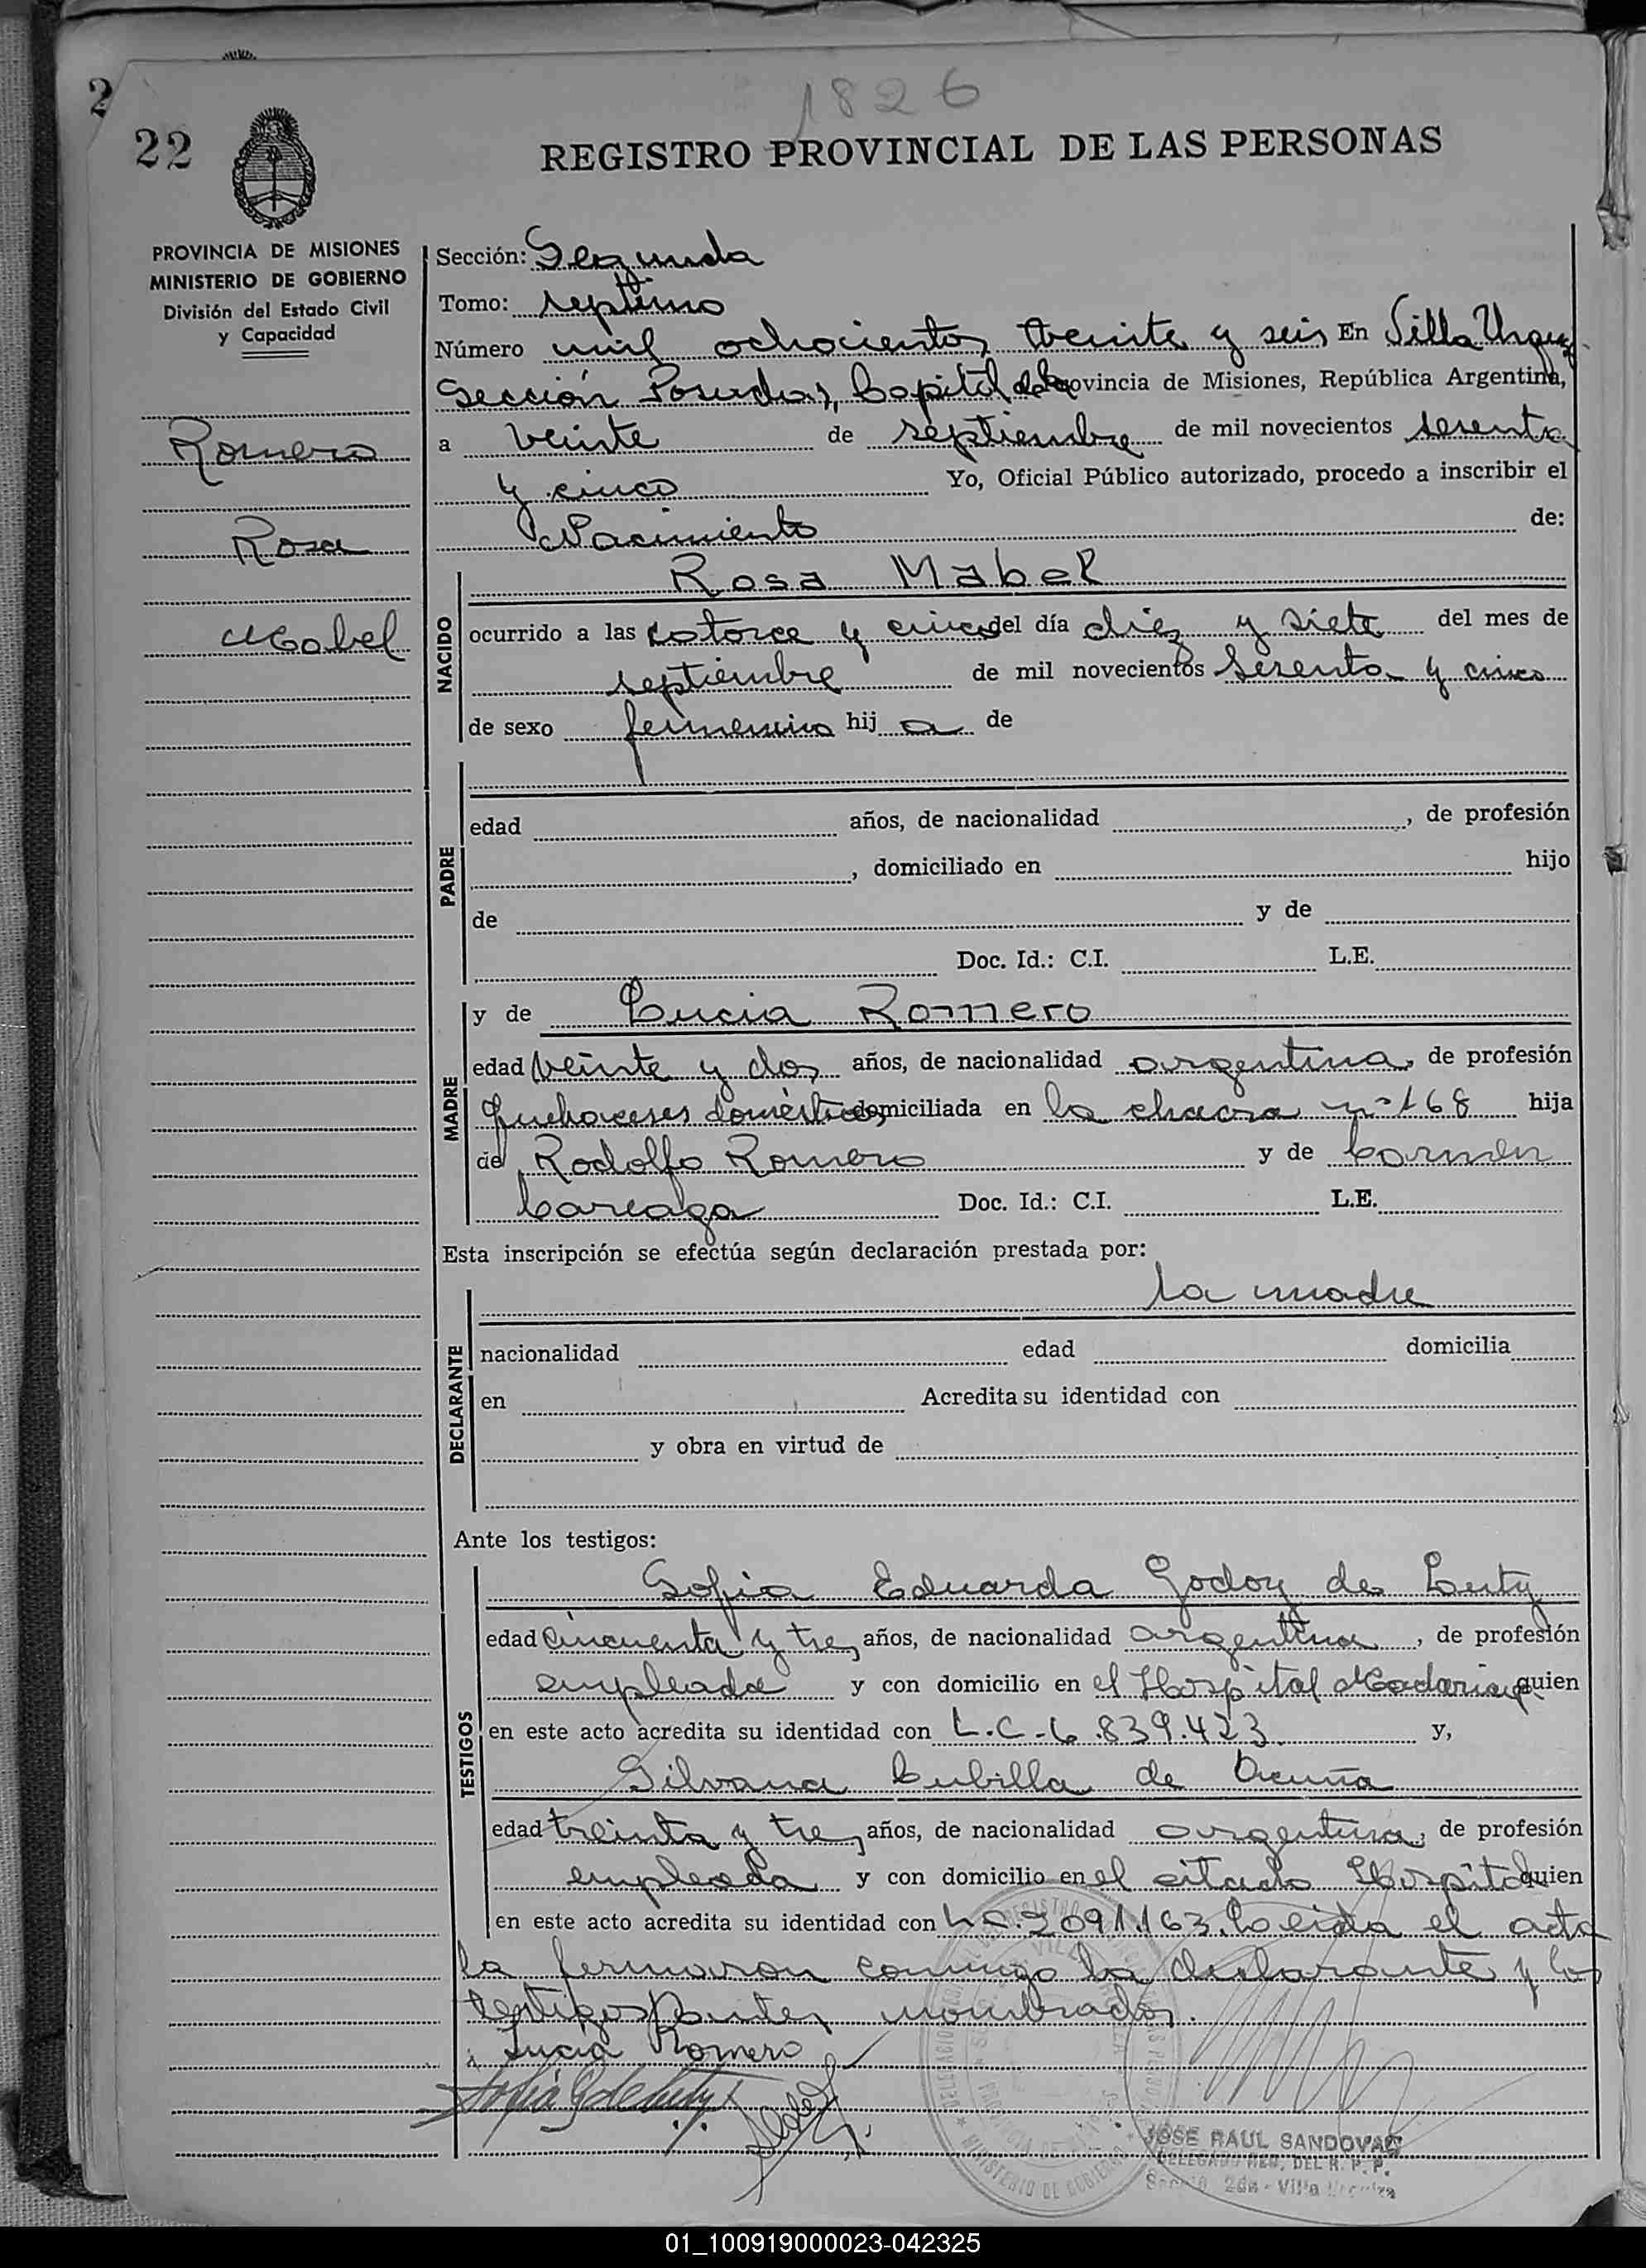 1826
2
22
REGISTRO PROVINCIAL DE LAS PERSONAS
PROVINCIA DE MISIONES
MINISTERIO DE GOBIERNO
División del Estado Civil
y Capacidad
Romero
Rosa
Mabel
Sección: Segunda
Tomo: septimo
Número mil ochocientos treinta y seis En Villa Urquiz
Sección Posadas, Capital de la Provincia de Misiones, República Argentina,
a veinte de septiembre de mil novecientos sesenta
y cinco Yo, Oficial Público autorizado, procedo a inscribir el
Nacimiento de:
NACIDO
Rosa Mabel
ocurrido a las catorce y cinco del día diez y siete del mes de
septiembre de mil novecientos sesenta y cinco
de sexo femenino hij a de
PADRE
edad años, de nacionalidad , de profesión
, domiciliado en hijo
de y de
Doc. Id.: C.I. L.E.
MADRE
y de Lucia Romero
edad veinte y dos años, de nacionalidad argentina, de profesión
Quehaceres domésticos, domiciliada en la chacra nº 168 hija
de Rodolfo Romero y de Carmen
Careaga Doc. Id.: C.I. L.E.
Esta inscripción se efectúa según declaración prestada por:
DECLARANTE
la madre
nacionalidad edad domicilia
en Acredita su identidad con
y obra en virtud de
Ante los testigos:
TESTIGOS
Sofia Eduarda Godoy de
edad cincuenta y tres años, de nacionalidad argentina, de profesión
empleada y con domicilio en el Hospital Madariaga quien
en este acto acredita su identidad con L.C. 6.839.423 y,
Silvana Cubilla de Acuña
edad treinta y tres años, de nacionalidad argentina, de profesión
empleada y con domicilio en el citado Hospital quien
en este acto acredita su identidad con L.C. 2091.163. Leida el acta
la firmaron conmigo la declarante y los
testigos antes nombrados.
Lucia Romero
JOSE RAUL SANDOVAL
DELEGADO DEL R. P. P.
2da - Villa Urquiza
01_100919000023-042325